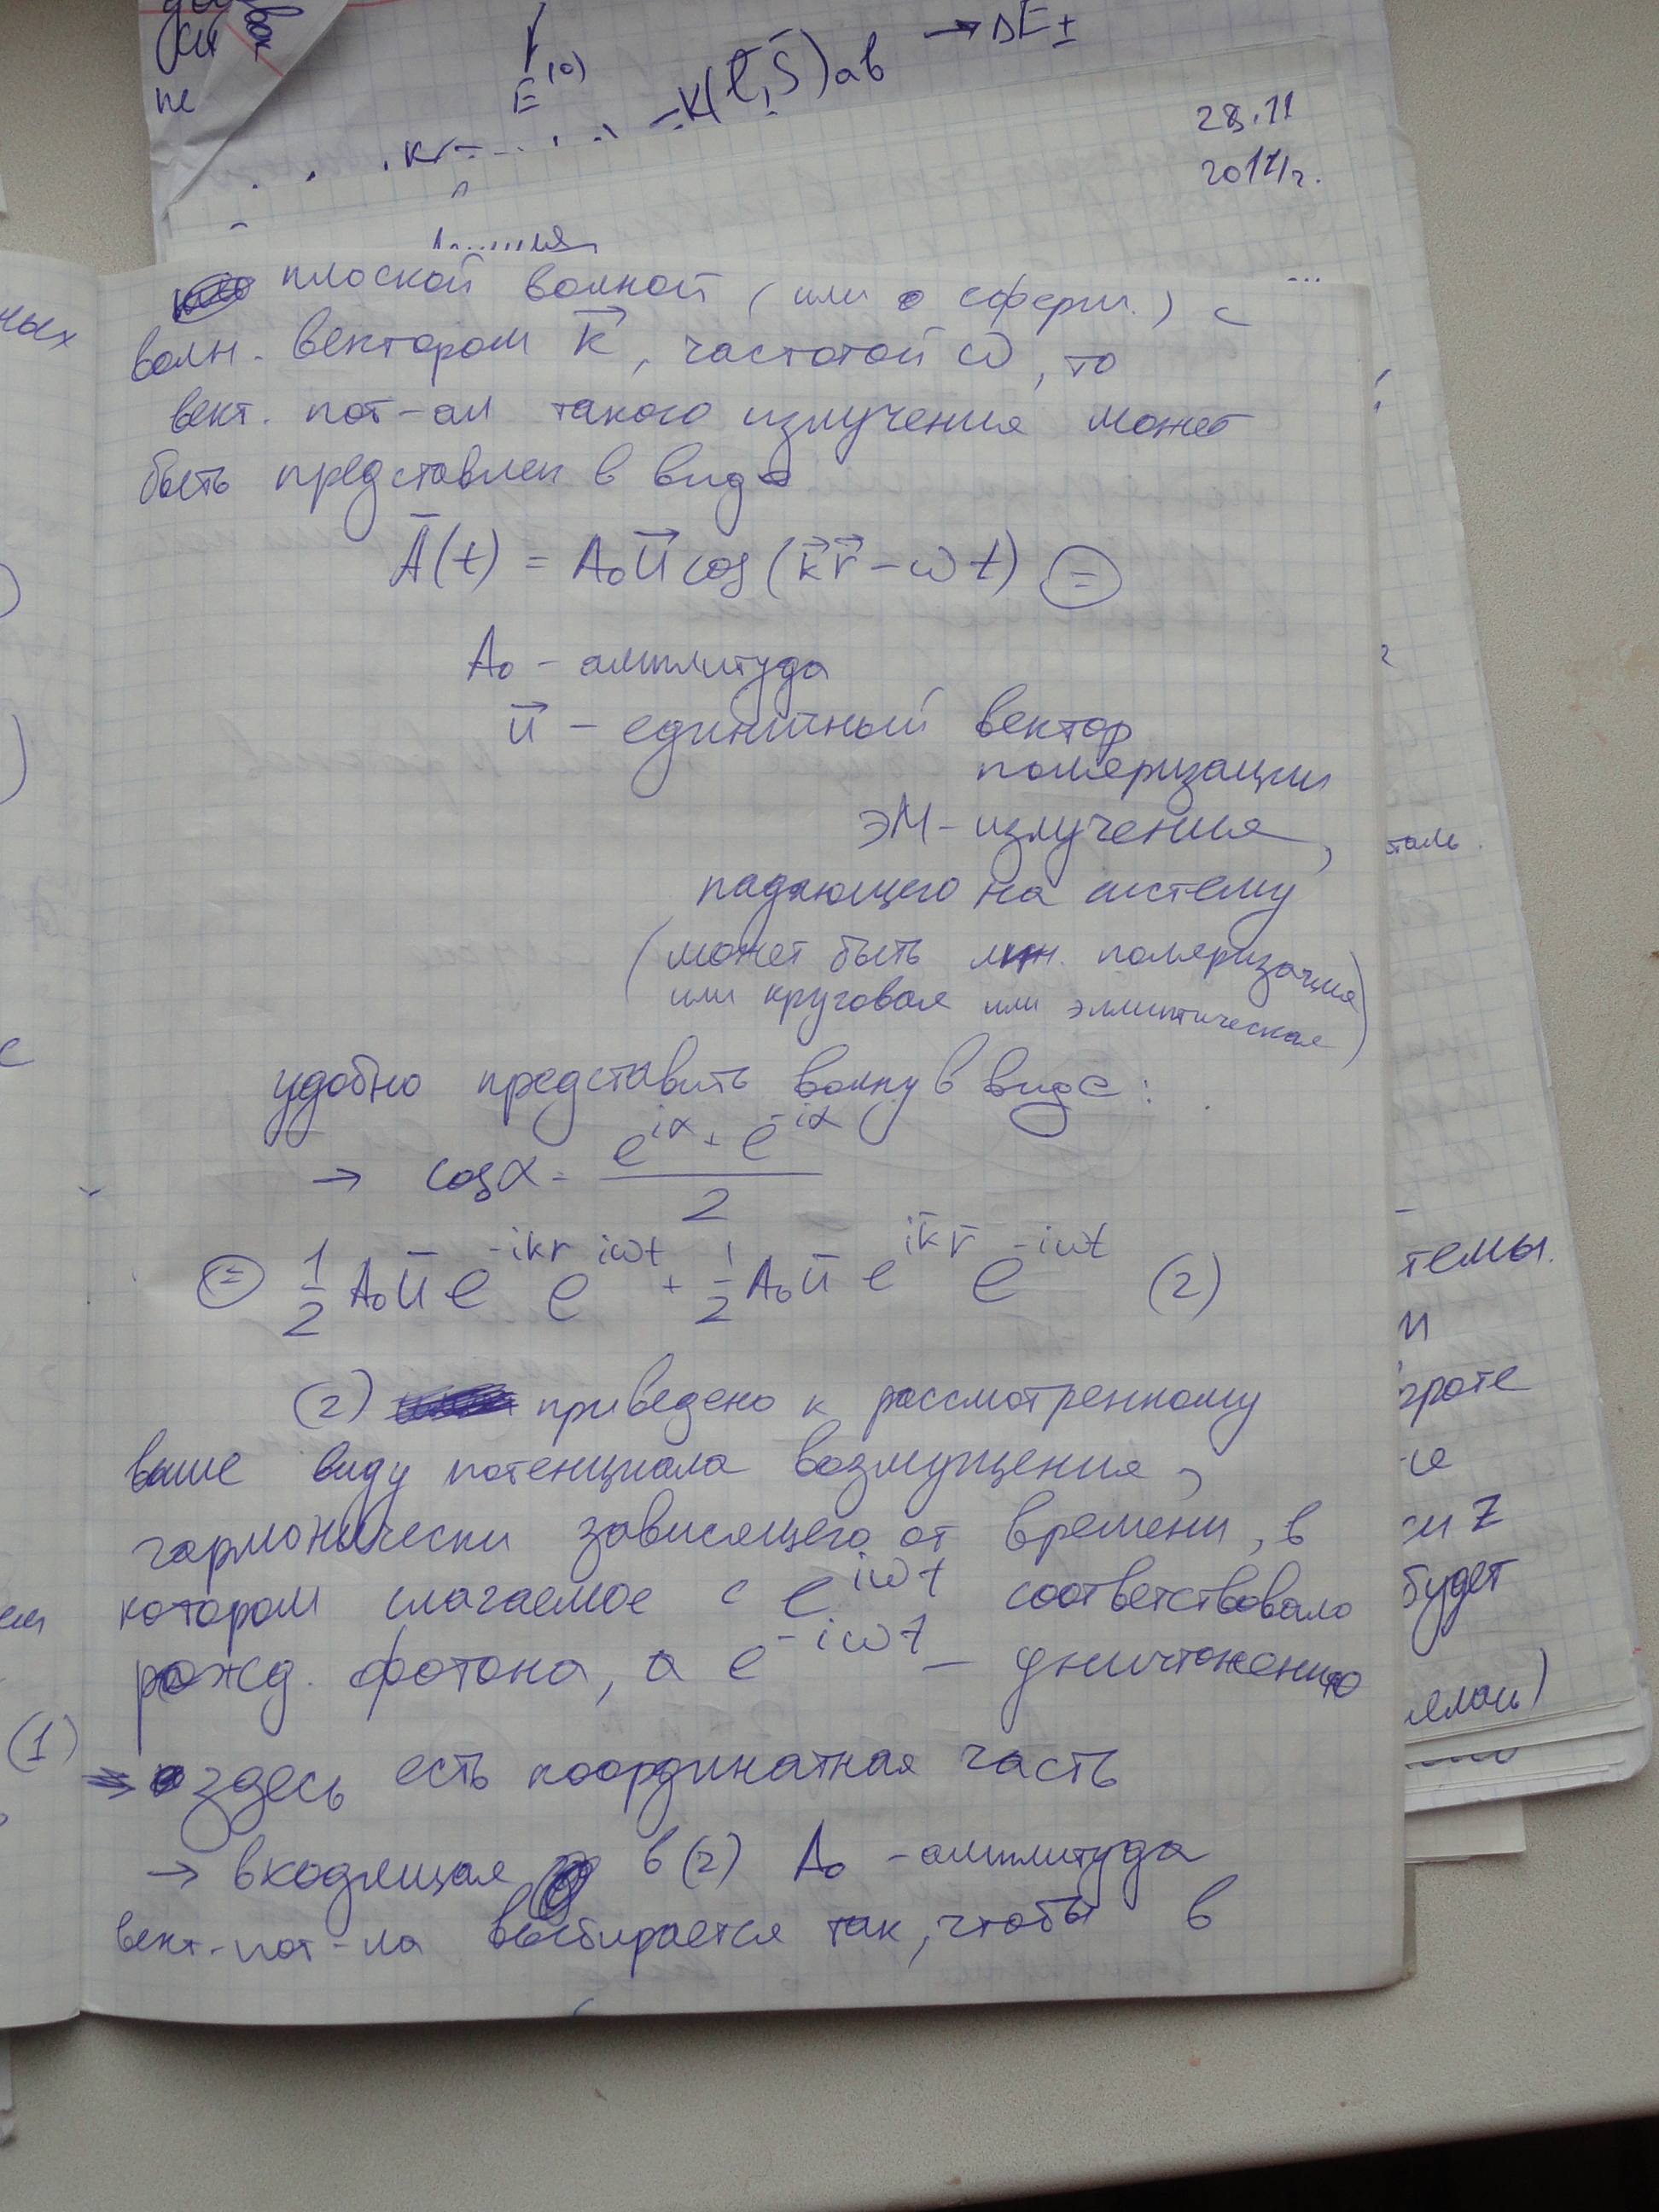 E^(0)
-K(l, S)ab → ΔE±
28.11
2017г.
плоской волной (или сферич.) с
волн. вектором k⃗, частотой ω, то
вект. пот-ал такого излучения может
быть представлен в виде
A̅(t) = A₀u⃗ cos(k⃗r⃗ - ωt) ⊜
A₀ - амплитуда
u⃗ - единичный вектор
поляризации
ЭМ-излучения,
падающего на систему
(может быть лин. поляризация
или круговая или эллиптическая)
удобно представить волну в виде:
→ cosα = (e^{iα} + e^{-iα})/2
⊜ 1/2 A₀u̅ e^{-ikr} e^{iωt} + 1/2 A₀u̅ e^{ik̅r̅} e^{-iωt} (2)
(2) приведено к рассмотренному
выше виду потенциала возмущения,
гармонически зависящего от времени, в
котором слагаемое с e^{iωt} соответствовало
рожд. фотона, а e^{-iωt} - уничтожению
⇒ здесь есть координатная часть
→ входящая в (2) A₀ - амплитуда
вект-пот-ла выбирается так, чтобы в
ных
(1)
таль.
темы.
си z
будет